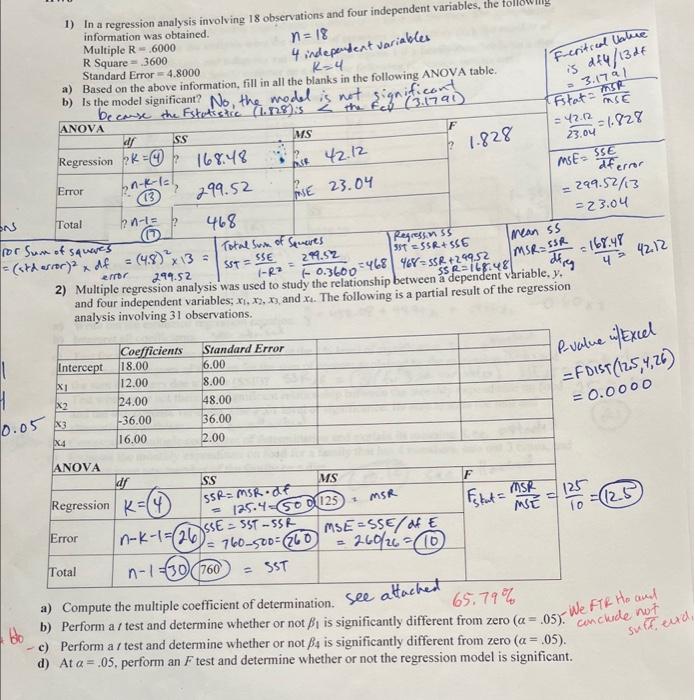 1) In a regression analysis involving 18 observations and four independent variables, the following
information was obtained.
n = 18
Multiple R = .6000
4 independent variables
R Square = .3600
K=4
Standard Error = 4.8000
a) Based on the above information, fill in all the blanks in the following ANOVA table.
b) Is the model significant? No, the model is not significant
because the Fstatistic (1.828) is < the Fcv (3.1791)
F-critical value
is df 4/13 df
= 3.1791
Fstat = MSR
MSE
= 42.12
23.04 = 1.828
MSE = SSE
df error
= 299.52/13
= 23.04
ANOVA
df SS MS F
Regression ? K=4 ? 168.48 ? MSR 42.12 ? 1.828
Error ? n-k-1= 13 ? 299.52 ? MSE 23.04
Total ? n-1= 17 ? 468
ror Sum of squares
= (std error)² x df error = (4.8)² x 13 = 299.52
Total Sum of Squares
SST = SSE
1-R² = 299.52
1-0.3600 = 468
Regression SS
SST = SSR + SSE
468 = SSR + 299.52
SSR = 168.48
mean SS
MSR = SSR
df reg = 168.48
4 = 42.12
2) Multiple regression analysis was used to study the relationship between a dependent variable, y,
and four independent variables; x1, x2, x3, and x4. The following is a partial result of the regression
analysis involving 31 observations.
Coefficients Standard Error
Intercept 18.00 6.00
x1 12.00 8.00
x2 24.00 48.00
x3 -36.00 36.00
x4 16.00 2.00
0.05
P-value w/Excel
=FDIST(12.5,4,26)
= 0.0000
ANOVA
df SS MS F
Regression K=4 SSR = MSR · df = 125·4=500 125 = MSR Fstat = MSR
MSE = 125
10 = 12.5
Error n-k-1=26 SSE = SST-SSR = 760-500=260 MSE = SSE/df E = 260/26 = 10
Total n-1=30 760 = SST
a) Compute the multiple coefficient of determination. see attached 65.79%
b) Perform a t test and determine whether or not β1 is significantly different from zero (α = .05). We FTR Ho and
conclude not
suff. evid.
Ho
c) Perform a t test and determine whether or not β4 is significantly different from zero (α = .05).
d) At α = .05, perform an F test and determine whether or not the regression model is significant.